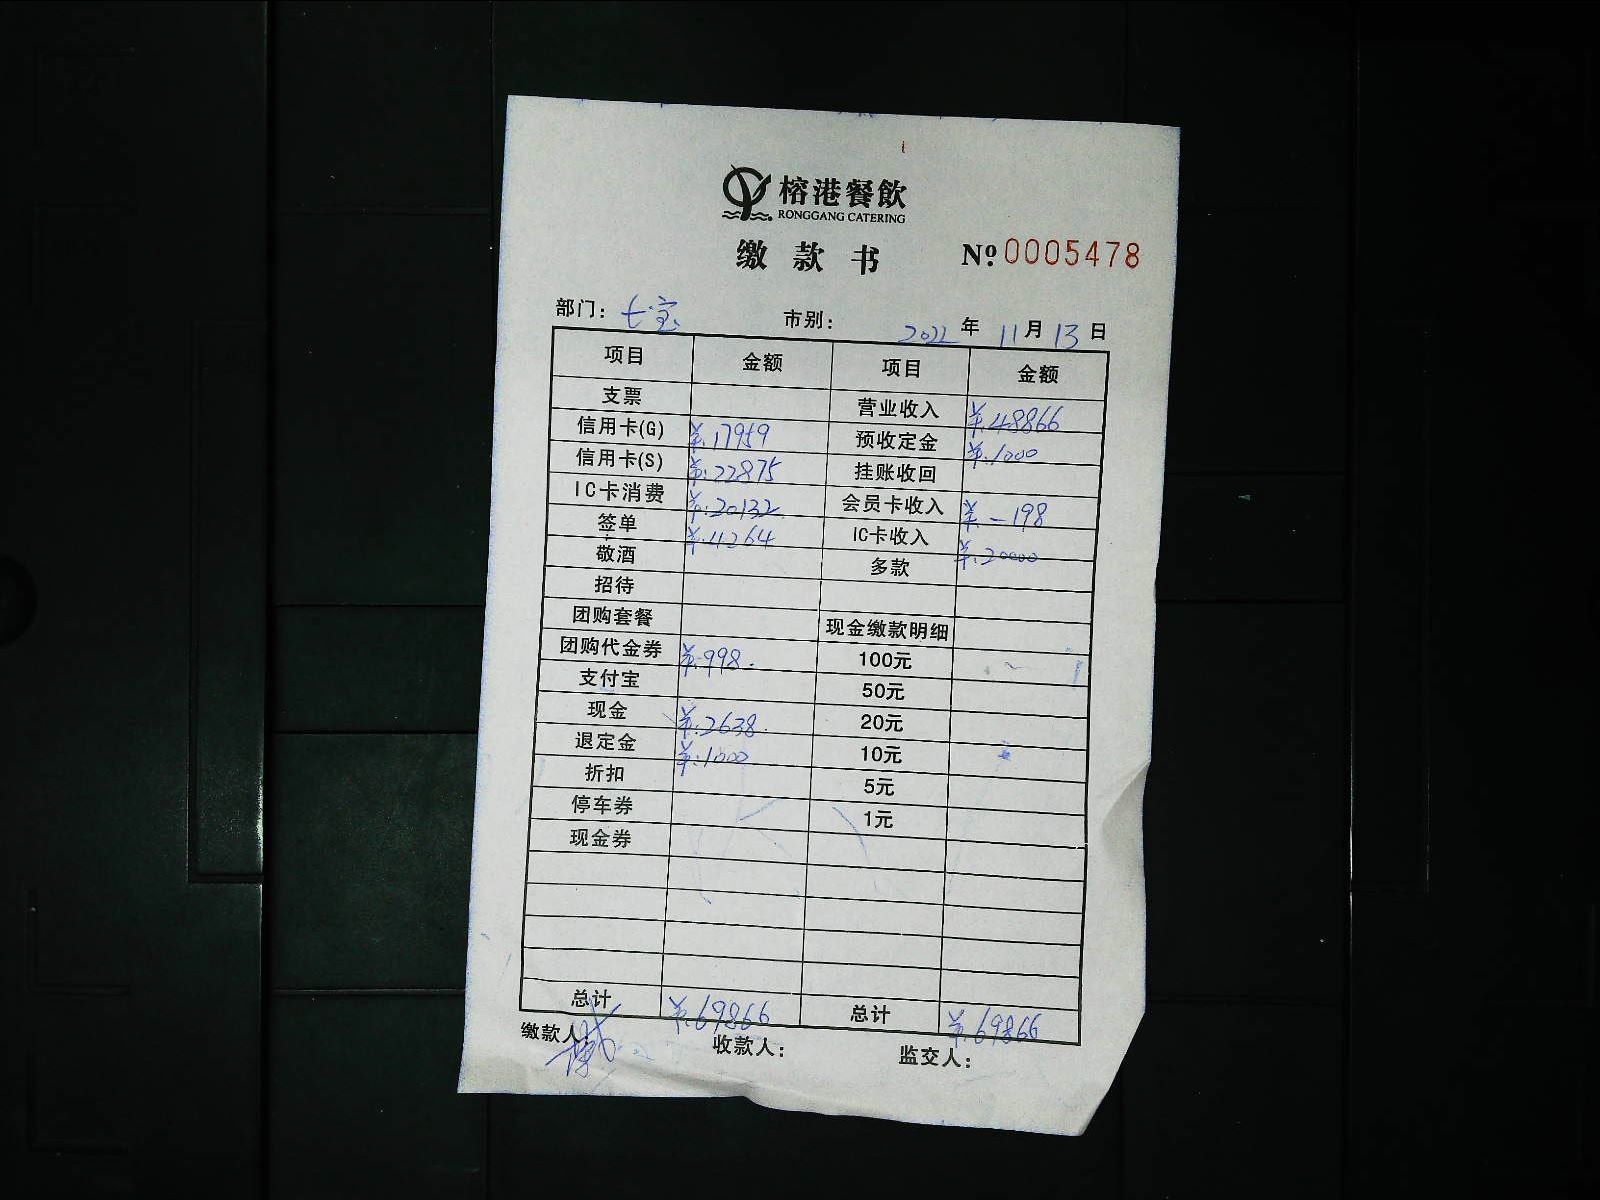 榕港餐飲
RONGGANG CATERING
缴款书 № 0005478
部门： 七宝 市别： 2022 年 11 月 13 日
项目 金额 项目 金额
支票 营业收入 ¥.48866
信用卡(G) ¥.17959 预收定金 ¥.1000
信用卡(S) ¥.22875 挂账收回
IC卡消费 ¥.20132 会员卡收入 ¥.-198
签单 ¥.4264 IC卡收入 ¥.20000
敬酒 多款
招待
团购套餐 现金缴款明细
团购代金券 ¥.998. 100元
支付宝 50元
现金 ¥.2638. 20元
退定金 ¥.1000 10元
折扣 5元
停车券 1元
现金券
总计 ¥.69866 总计 ¥.69866
缴款人： 收款人： 监交人：